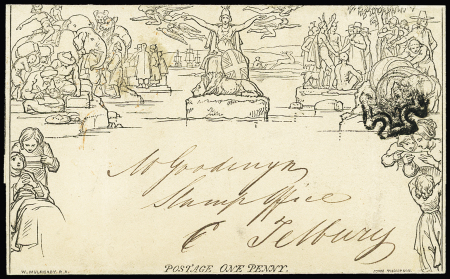 Mr Goodwyn
Stamp Office
Tetbury
POSTAGE ONE PENNY.
W. MULREADY. R.A.
JOHN THOMPSON